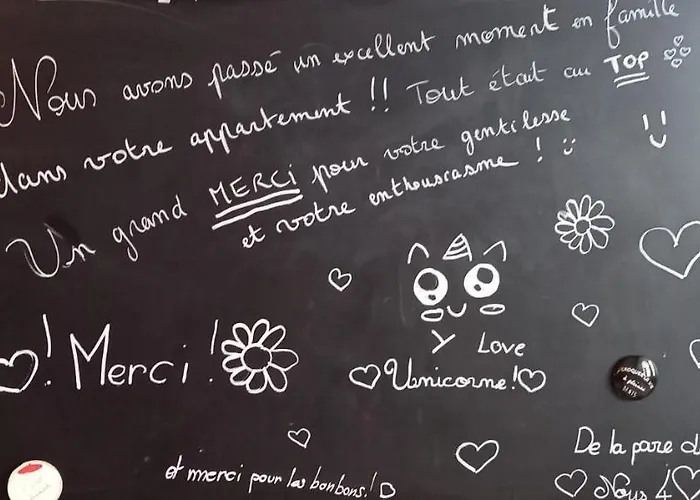 Nous avons passé un excellent moment en famille
dans votre appartement !! Tout était au TOP
Un grand MERCi pour votre gentilesse
et votre enthousiasme !
! Merci !
Y Love
Unicorne!
et merci pour les bonbons!
De la pare d
Nous 4